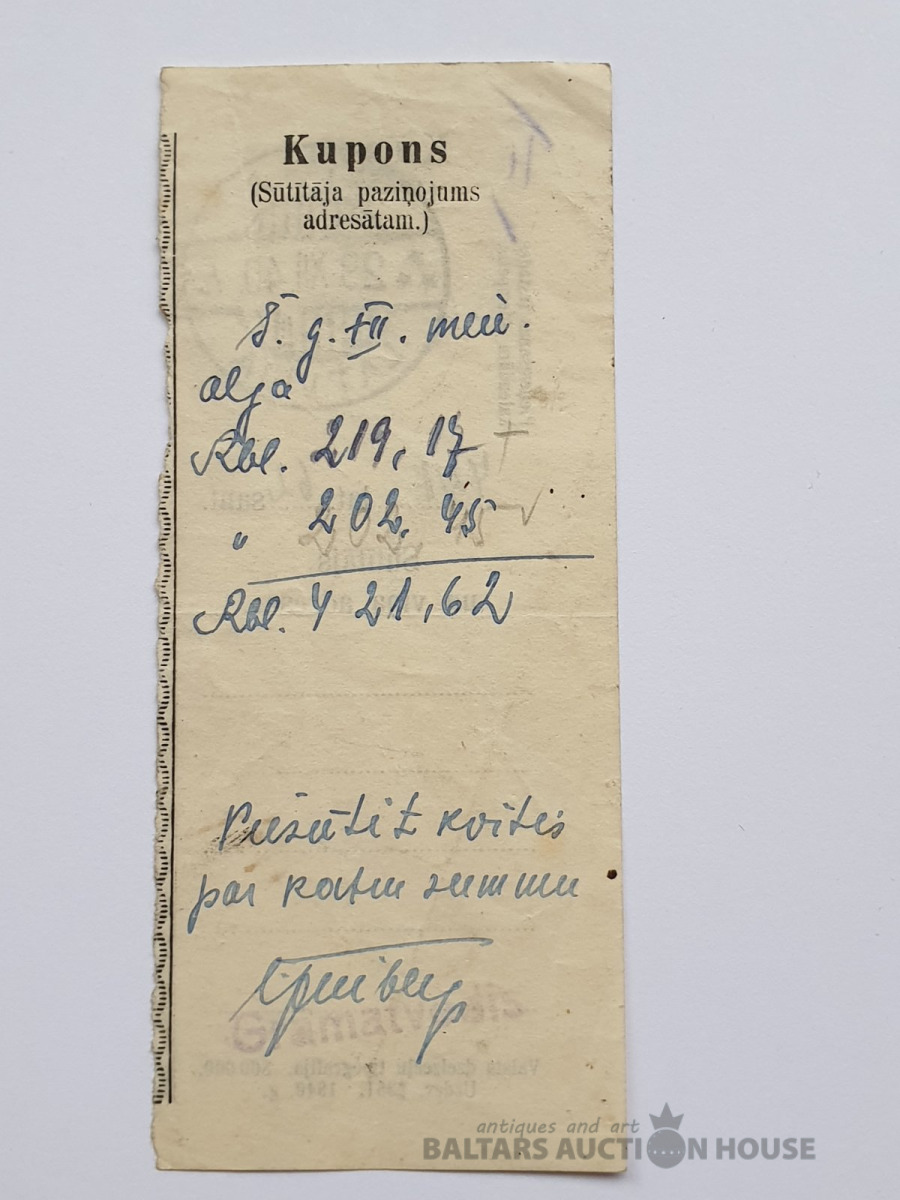 Kupons
(Sūtītāja paziņojums
adresātam.)
Š. g. XII. mēn.
alga
Rbl. 219,17
" 202,45
Rbl. 421,62
Piesūtīt kvītes
par katru summu
antiques and art
BALTARS AUCTION HOUSE